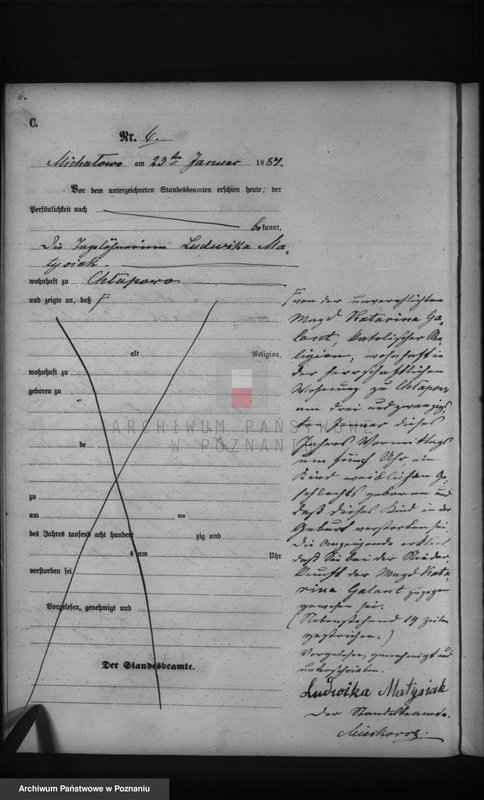 6.
C.
Nr. 6.
Michalowo am 23ten Januar 1884.
Vor dem unterzeichneten Standesbeamten erschien heute, der
Persönlichkeit nach
bekannt,
die Taglöhnerin Ludwika Ma-
tysiak
wohnhaft zu Chlapowo
und zeigte an, daß
alt Religion,
wohnhaft zu
geboren zu
de
zu
am ten
des Jahres tausend acht hundert zig und
um Uhr
verstorben sei
Vorgelesen, genehmigt und
Der Standesbeamte.
von der unverehelichten
Magd Katarina Ga-
lant, katolischer Re-
ligion, wohnhaft in
der herrschaftlichen
Wohnung zu Chlapowo
am drei und zwanzig-
ten Januar dieses
Jahres Vormittags
um fünf Uhr, ein
Kind weiblichen Ge-
schlechts geboren und
daß dieses Kind in der
Geburt verstorben sei
Die Anzeigende erklärt
daß sie bei der Nieder-
kunft der Magd Kata-
rina Galant zugegen
gewesen sei.
(Nebenstehend 19 Zeilen
gestrichen.)
Vorgelesen, genehmigt und
unterschrieben.
Ludwika Matysiak
Der Standesbeamte.
ARCHIWUM PAŃSTWOWE
W POZNANIU
Archiwum Państwowe w Poznaniu